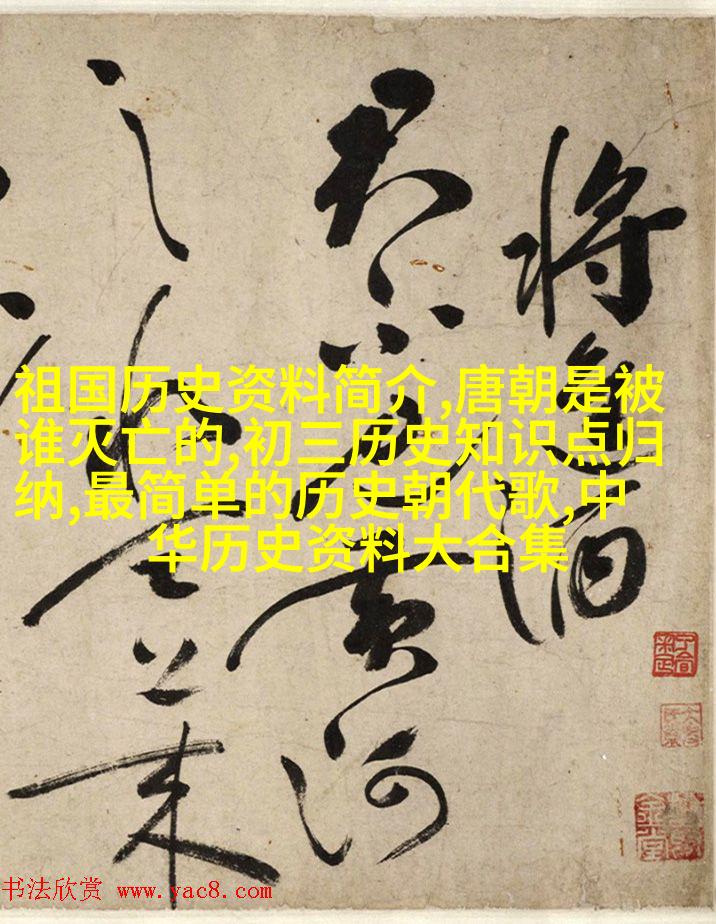 将進酒
君不見黄河
之水天上来
祖国历史资料简介,唐朝是被
谁灭亡的,初三历史知识点归
纳,最简单的历史朝代歌,中
华历史资料大合集
书法欣赏 www.yac8.com